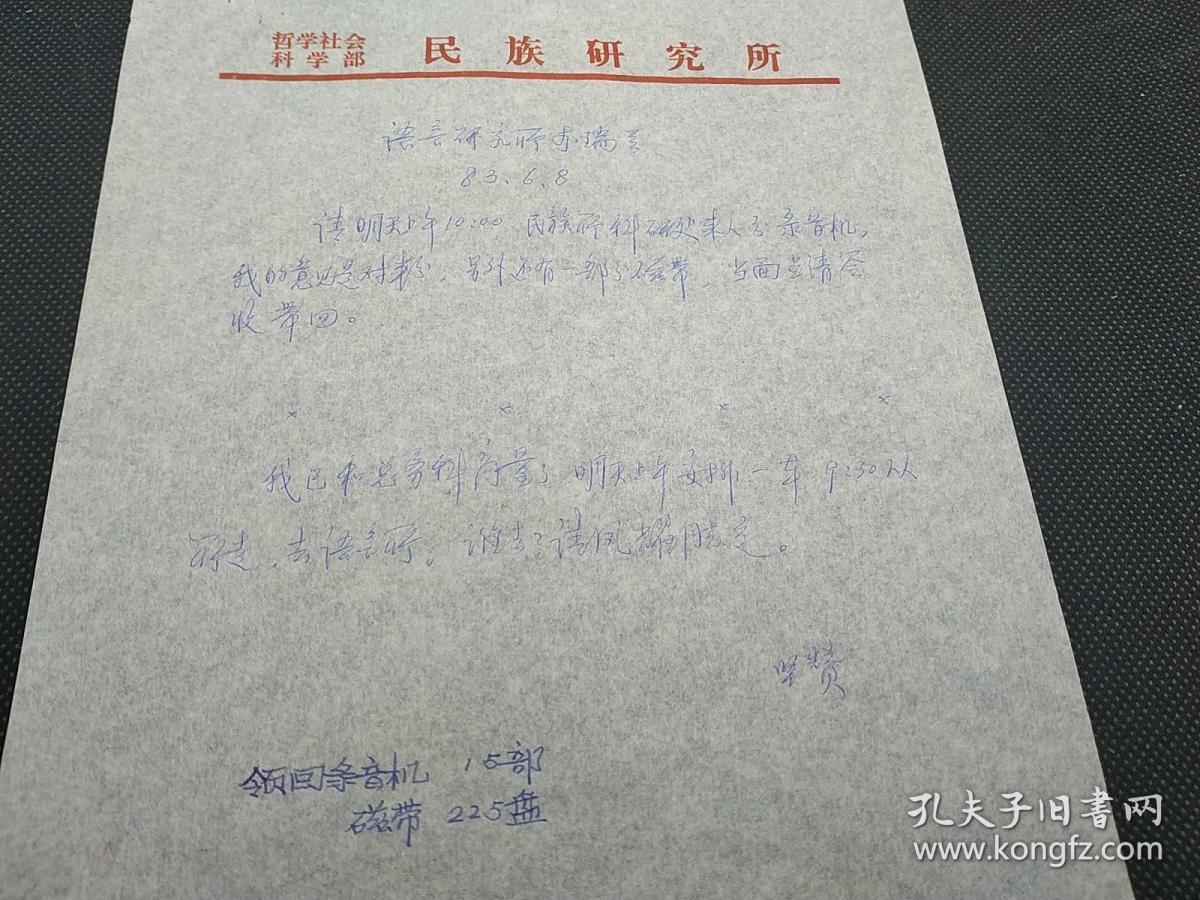 哲学社会
科学部 民族研究所
语言研究所李瑞
83.6.8
请明天上午10:00 民族所科研处来人分录音机,
我的意见是对半分,另外还有一部分磁带,当面点清签
收带回。
× × × ×
我已和总务科商量了明天上午安排一车 9:30从
所走,去语言所。谁去?请凤 决定。
坚赞
领回录音机 15部
磁带 225盘
孔夫子旧书网
www.kongfz.com